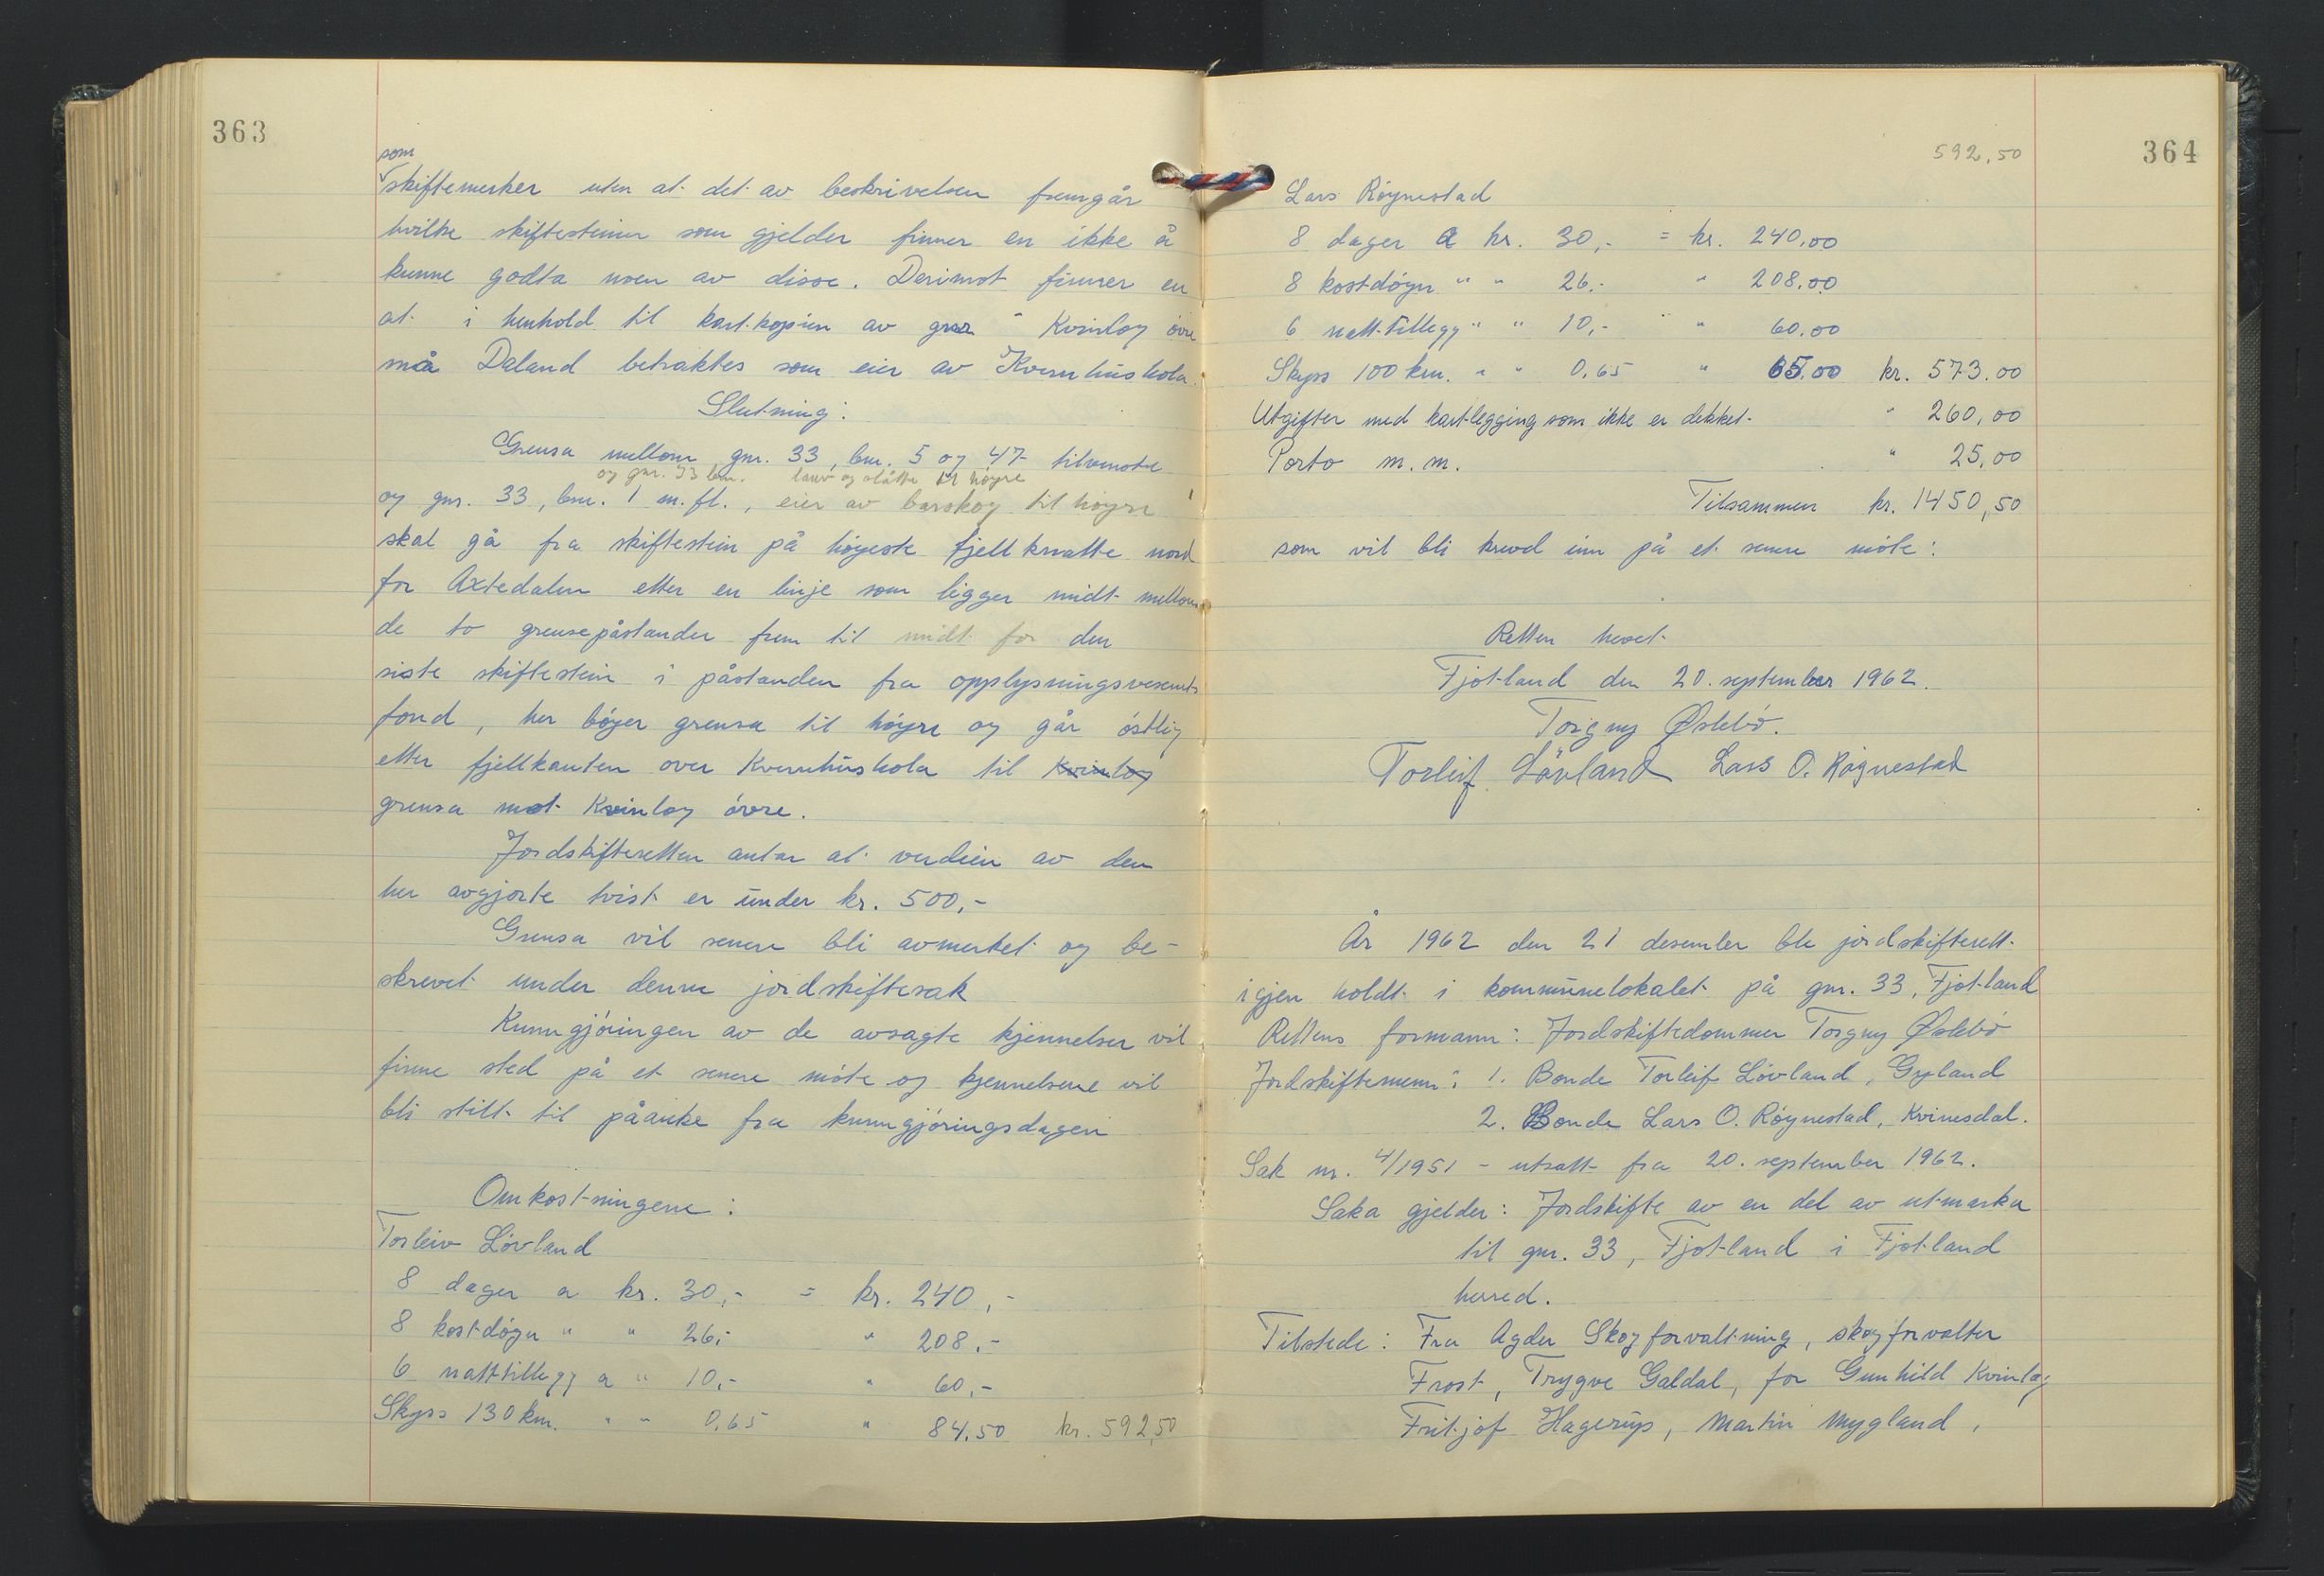 363
som
skiftemerker uten at det av beskrivelsen fremgår
hvilke skiftesteiner som gjelder finner en ikke å
kunne godta noen av disse. Derimot finner en
at i henhold til kart-kopien av Kvinlog øvre
må Daland betraktes som eier av Kvernhushola.
Slutning:
Grensa mellom gnr. 33, bnr. 5 og 47 tilvenstre
og gnr. 33 bnr. lauv og slåtte til høyre
og gnr. 33, bnr. 1 m.fl., eier av barskog til høyre
skal gå fra skiftestein på høyeste fjellknatte nord
for Axtedalen etter en linje som ligger midt mellom
de to grensepåstander frem til midt for den
siste skiftestein i påstanden fra opplysningsvesenets
fond, her bøyer grensa til høyre og går østlig
etter fjellkanten over Kvernhushola til Kvinlog
grensa mot Kvinlog øvre.
Jordskifteretten antar at verdien av den
her avgjorte tvist er under kr. 500,-
Grensa vil senere bli avmerket og be-
skrevet under denne jordskiftesak
Kunngjøringen av de avsagte kjennelser vil
finne sted på et senere møte og kjennelsene vil
bli stilt til påanke fra kunngjøringsdagen
Omkostningene:
Torleiv Lövland
8 dager a kr. 30,- = kr. 240,-
8 kostdøgn " " 26,- " 208,-
6 natttillegg a " 10,- " 60,-
Skyss 130 km. " " 0,65 " 84,50 kr. 592,50
364
592,50
Lars Röynestad
8 dager a kr. 30,- = kr. 240,00
8 kostdøgn " " 26,- " 208,00
6 natt-tillegg " " 10,- " " 60,00
Skyss 100 km. " " 0,65 " 65,00 kr. 573,00
Utgifter med kartlegging som ikke er dekket " 260,00
Porto m.m. " 25,00
Tilsammen kr. 1450,50
som vil bli krevd inn på et senere møte:
Retten hevet
Fjotland den 20. september 1962.
Torgny Østebø.
Torleif Lövland Lars O. Röynestad
År 1962 den 21 desember ble jordskifterett
igjen holdt i kommunelokalet på gnr. 33, Fjotland
Rettens formann: Jordskiftedommer Torgny Østebø
Jordskiftemenn: 1. Bonde Torleif Lövland, Gyland
2. Bonde Lars O. Röynestad, Kvinesdal.
Sak nr. 4/1951 - utsatt fra 20. september 1962.
Saka gjelder: Jordskifte av en del av utmarka
til gnr. 33, Fjotland i Fjotland
herred.
Tilstede: Fra Agder Skogforvaltning, skogforvalter
Frost, Trygve Galdal, for Gunhild Kvinlog
Fritjof Hagerup, Martin Mygland,